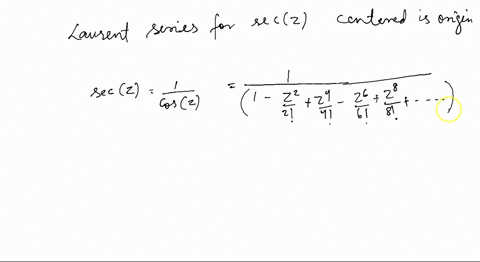 Laurent series for sec(z) centered is origin
sec(z) = 1/cos(z) = 1/(1 - z²/2! + z⁴/4! - z⁶/6! + z⁸/8! + ----)